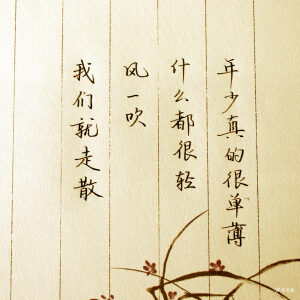 年少真的很单薄
什么都很轻
风一吹
我们就走散